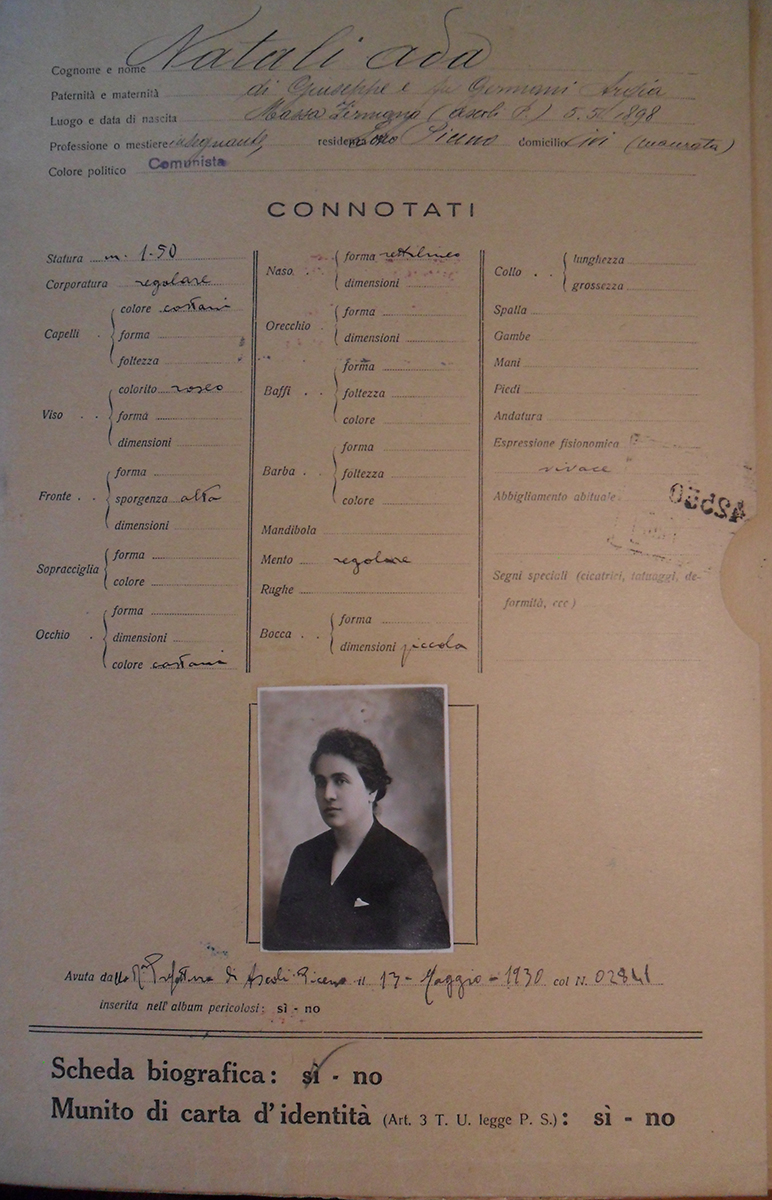 Cognome e nome Natali Ada
Paternità e maternità di Giuseppe e fu Germani Argia
Luogo e data di nascita Massa Fermana (Ascoli P.) 5.5. 1898
Professione o mestiere insegnante, residenza Loro Piceno domicilio ivi (Macerata)
Colore politico Comunista
CONNOTATI
Statura m. 1-50
Corporatura regolare
Capelli
colore castani
forma
foltezza
Viso
colorito roseo
forma
dimensioni
Fronte
forma
sporgenza alta
dimensioni
Sopracciglia
forma
colore
Occhio
forma
dimensioni
colore castani
Naso.
forma rettilineo
dimensioni
Orecchio
forma
dimensioni
Baffi
forma
foltezza
colore
Barba
forma
foltezza
colore
Mandibola
Mento regolare
Rughe
Bocca
forma
dimensioni piccola
Collo
lunghezza
grossezza
Spalla
Gambe
Mani
Piedi
Andatura
Espressione fisionomica
vivace
Abbigliamento abituale.
42550
Segni speciali (cicatrici, tatuaggi, de-
formità, ecc)
Avuta dalla Rª Prefettura di Ascoli Piceno il 13 - Maggio - 1930 col N. 02841
inserita nell'album pericolosi: sì - no
Scheda biografica: sì - no
Munito di carta d'identità (Art. 3 T. U. legge P. S.): sì - no